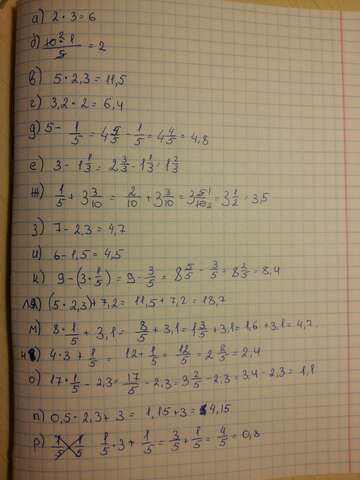 а) 2·3=6
б) 10·1/5 = 2
в) 5·2,3=11,5
г) 3,2·2=6,4
д) 5-1/5 = 4 5/5 - 1/5 = 4 4/5 = 4,8
е) 3-1 1/3 = 2 3/3 - 1 1/3 = 1 2/3
ж) 1/5 + 3 3/10 = 2/10 + 3 3/10 = 3 5/10 = 3 1/2 = 3,5
з) 7-2,3=4,7
и) 6-1,5=4,5
к) 9-(3·1/5) = 9-3/5 = 8 5/5 - 3/5 = 8 2/5 = 8,4
л) (5·2,3)+7,2 = 11,5+7,2=18,7
м) 8·1/5 + 3,1 = 8/5 + 3,1 = 1 3/5 + 3,1 = 1,6+3,1=4,7
н) 4·3+1/5 = 12+1/5 = 12/5 = 2 2/5 = 2,4
о) 17·1/5 - 2,3 = 17/5 - 2,3 = 3 2/5 - 2,3 = 3,4-2,3=1,1
п) 0,5·2,3+3 = 1,15+3=4,15
р) 1/5·3+1/5 = 3/5 + 1/5 = 4/5 = 0,8